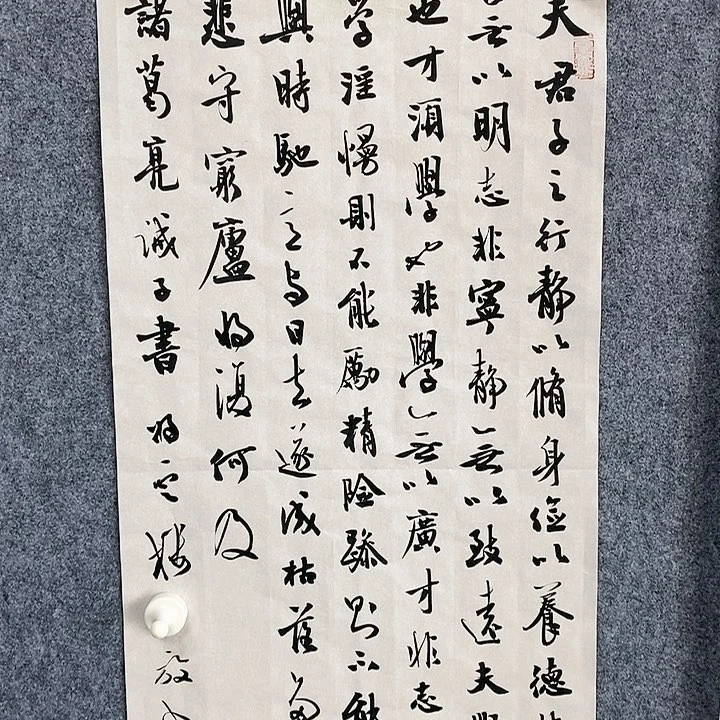 夫君子之行静以脩身儉以養德
無以明志非寧静無以致遠夫學
也才須學也非學無以廣才非志
學淫慢則不能勵精險躁則不能
與時馳意與日去遂成枯落多
悲守窮廬將復何及
諸葛亮誡子書